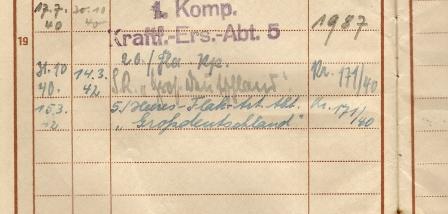 17.7. 20.10 1. Komp. 1987
40 40 Kraftf.-Ers.-Abt. 5
19
31.10 14.3. 20./
40. 42 I.R. „Großdeutschland“ Nr. 171/40
15.3. 5/Heeres-Flak-Art. Abt. Nr. 171/40
42 „Großdeutschland“